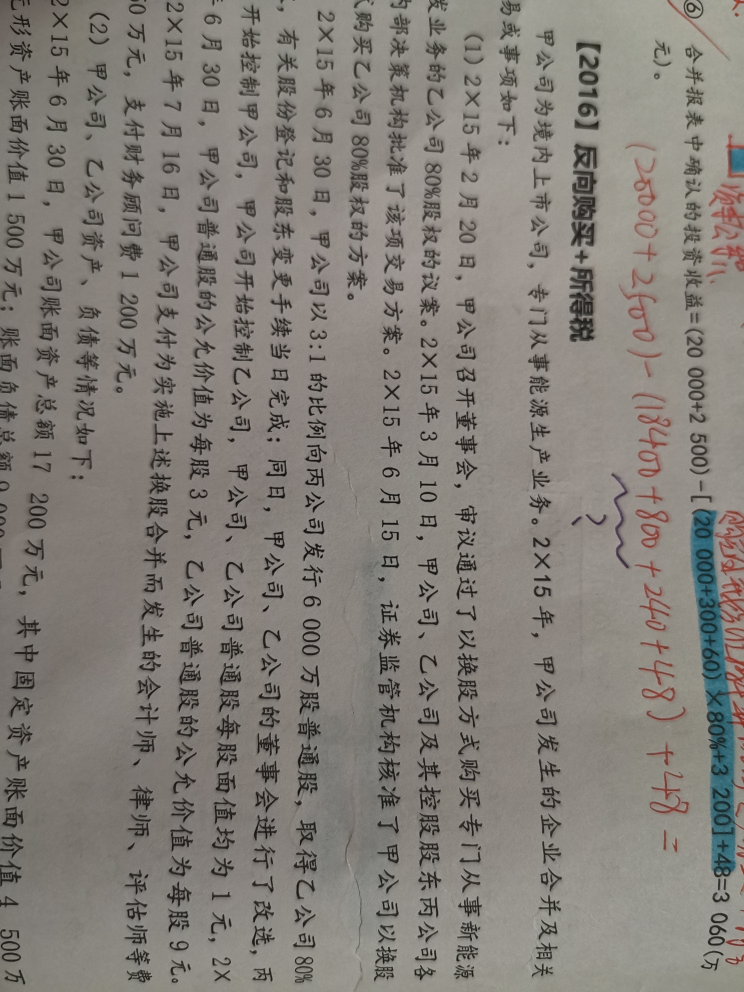 ⑥ 合并报表中确认的投资收益=(20 000+2 500)-[(20 000+300+60)×80%+3 200]+48=3 060(万
元)。
(20000+2500)-(18400+800+240+48)+48=
【2016】反向购买+所得税
甲公司为境内上市公司，专门从事能源生产业务。2×15年，甲公司发生的企业合并及相关
易或事项如下：
(1)2×15年2月20日，甲公司召开董事会，审议通过了以换股方式购买专门从事新能源
发业务的乙公司80%股权的议案。2×15年3月10日，甲公司、乙公司及其控股股东丙公司各
内部决策机构批准了该项交易方案。2×15年6月15日，证券监管机构核准了甲公司以换股
式购买乙公司80%股权的方案。
2×15年6月30日，甲公司以3:1的比例向丙公司发行6 000万股普通股，取得乙公司80%
，有关股份登记和股东变更手续当日完成；同日，甲公司、乙公司的董事会进行了改选，丙
开始控制甲公司，甲公司开始控制乙公司，甲公司、乙公司普通股每股面值均为1元，2×
年6月30日，甲公司普通股的公允价值为每股3元，乙公司普通股的公允价值为每股9元。
2×15年7月16日，甲公司支付为实施上述换股合并而发生的会计师、律师、评估师等费
50万元，支付财务顾问费1 200万元。
(2)甲公司、乙公司资产、负债等情况如下：
2×15年6月30日，甲公司账面资产总额17 200万元，其中固定资产账面价值4 500万
无形资产账面价值1 500万元；账面负债总额9 000